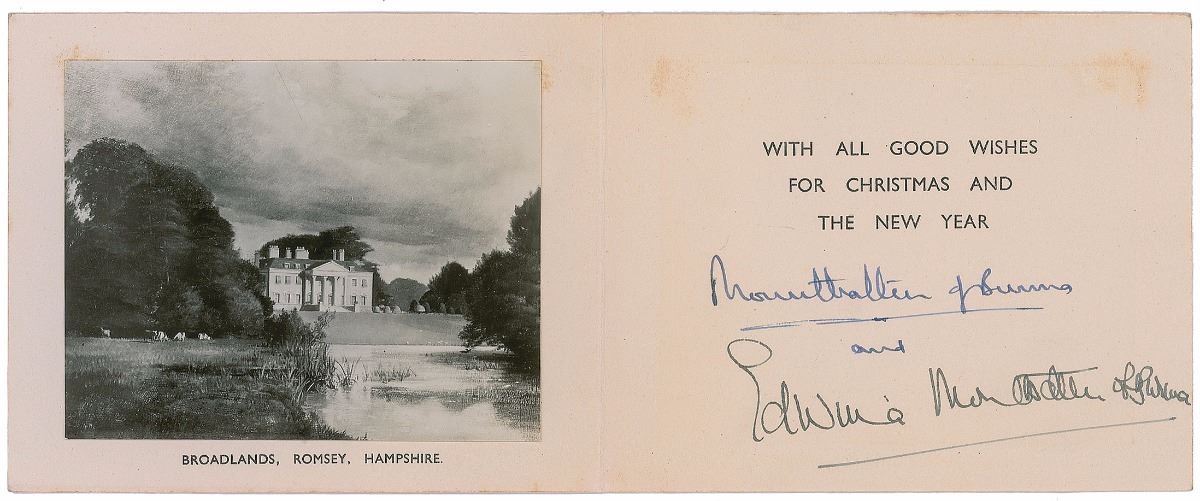 BROADLANDS, ROMSEY, HAMPSHIRE.
WITH ALL GOOD WISHES
FOR CHRISTMAS AND
THE NEW YEAR
Mountbatten of Burma
and
Edwina Mountbatten of Burma